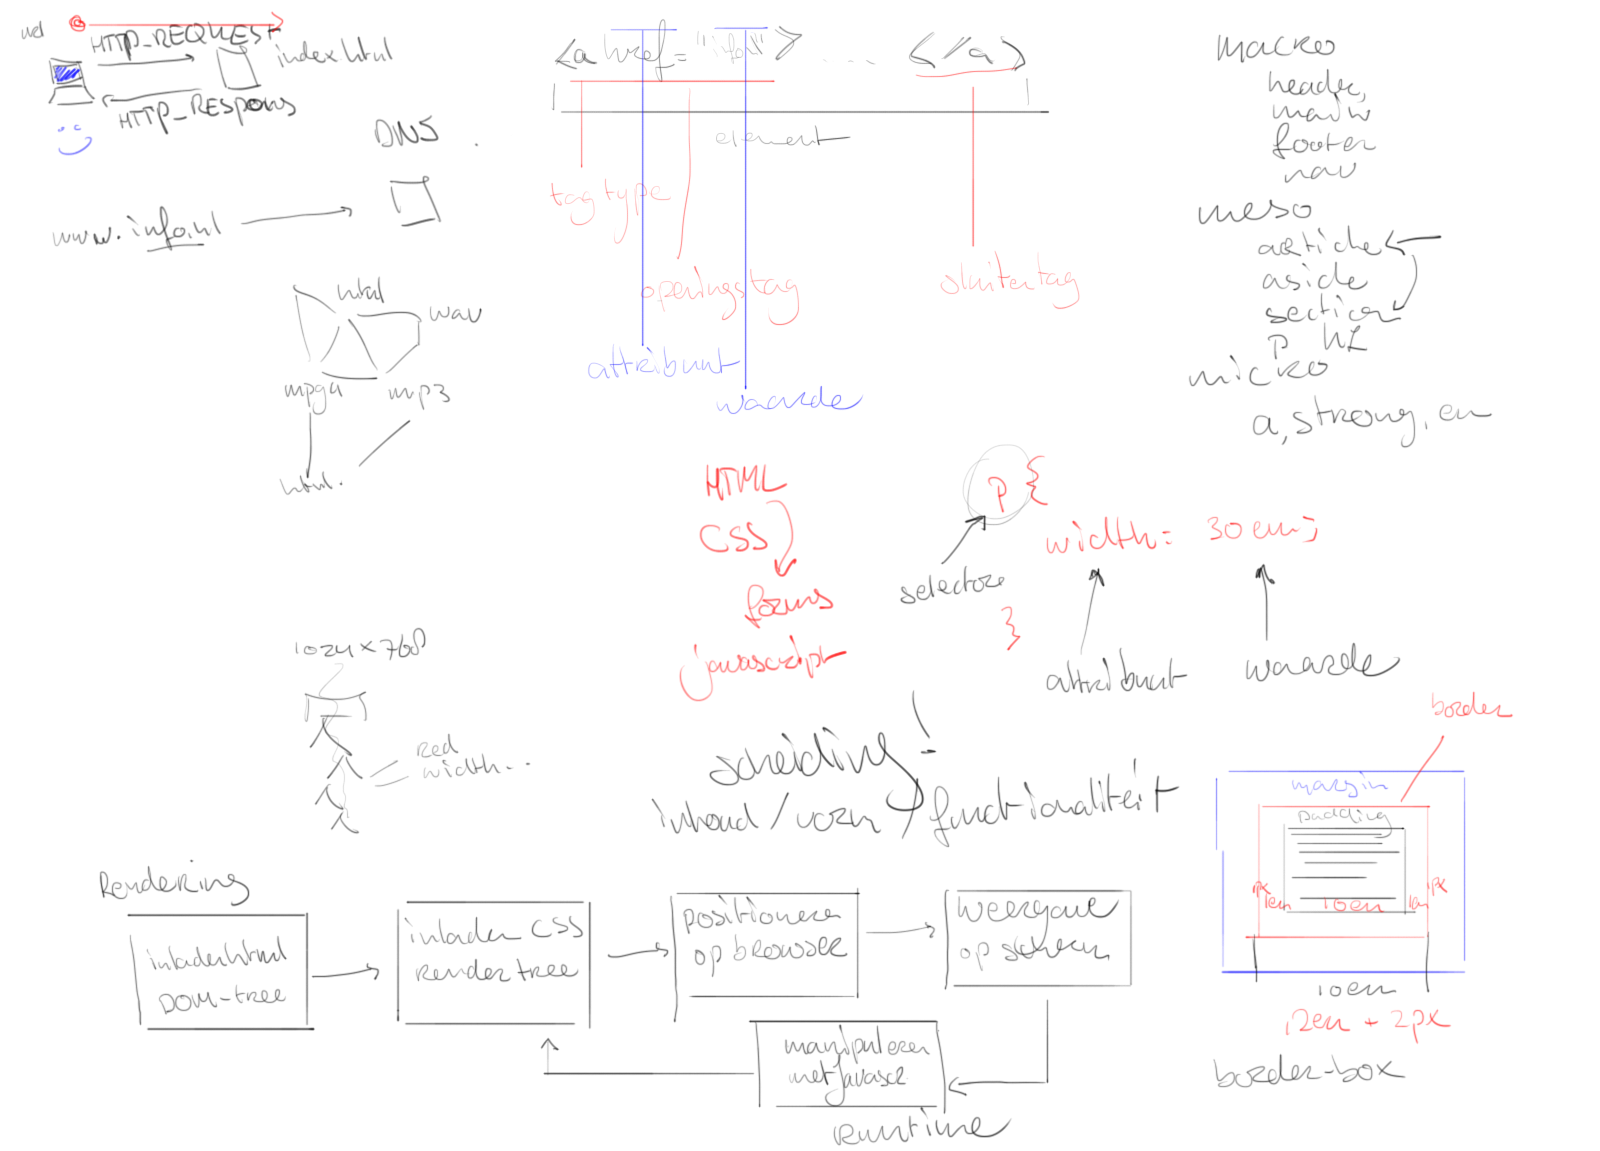 HTTP_REQUEST
index.html
HTTP_RESPONS
DNS
www.info.nl
html
wav
mpg4
mp3
html.
<a href="info"> .... </a>
element
tag type
openingstag
sluitentag
attribuut
waarde
macro
header,
main
footer
nav
meso
article
aside
section
p h1
micro
a, strong, em
HTML
CSS
forms
javascript
p {
width: 30em;
}
selector
attribuut
waarde
1024 x 768
red
width...
scheiding!
inhoud / vorm / functionaliteit
border
margin
padding
1px 1em 10em 1em 1px
10em
12em + 2px
border-box
Rendering
inladen html
DOM-tree
inladen CSS
render tree
positioneren
op browser
weergave
op scherm
manipuleren
met javascr
runtime